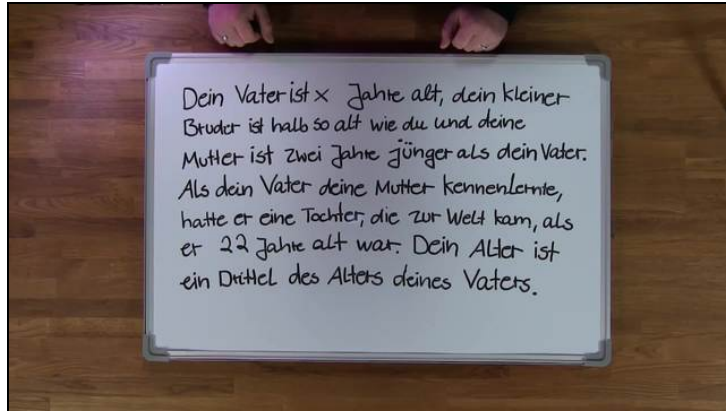 Dein Vater ist x Jahre alt, dein kleiner
Bruder ist halb so alt wie du und deine
Mutter ist zwei Jahre jünger als dein Vater.
Als dein Vater deine Mutter kennenlernte,
hatte er eine Tochter, die zur Welt kam, als
er 22 Jahre alt war. Dein Alter ist
ein Drittel des Alters deines Vaters.